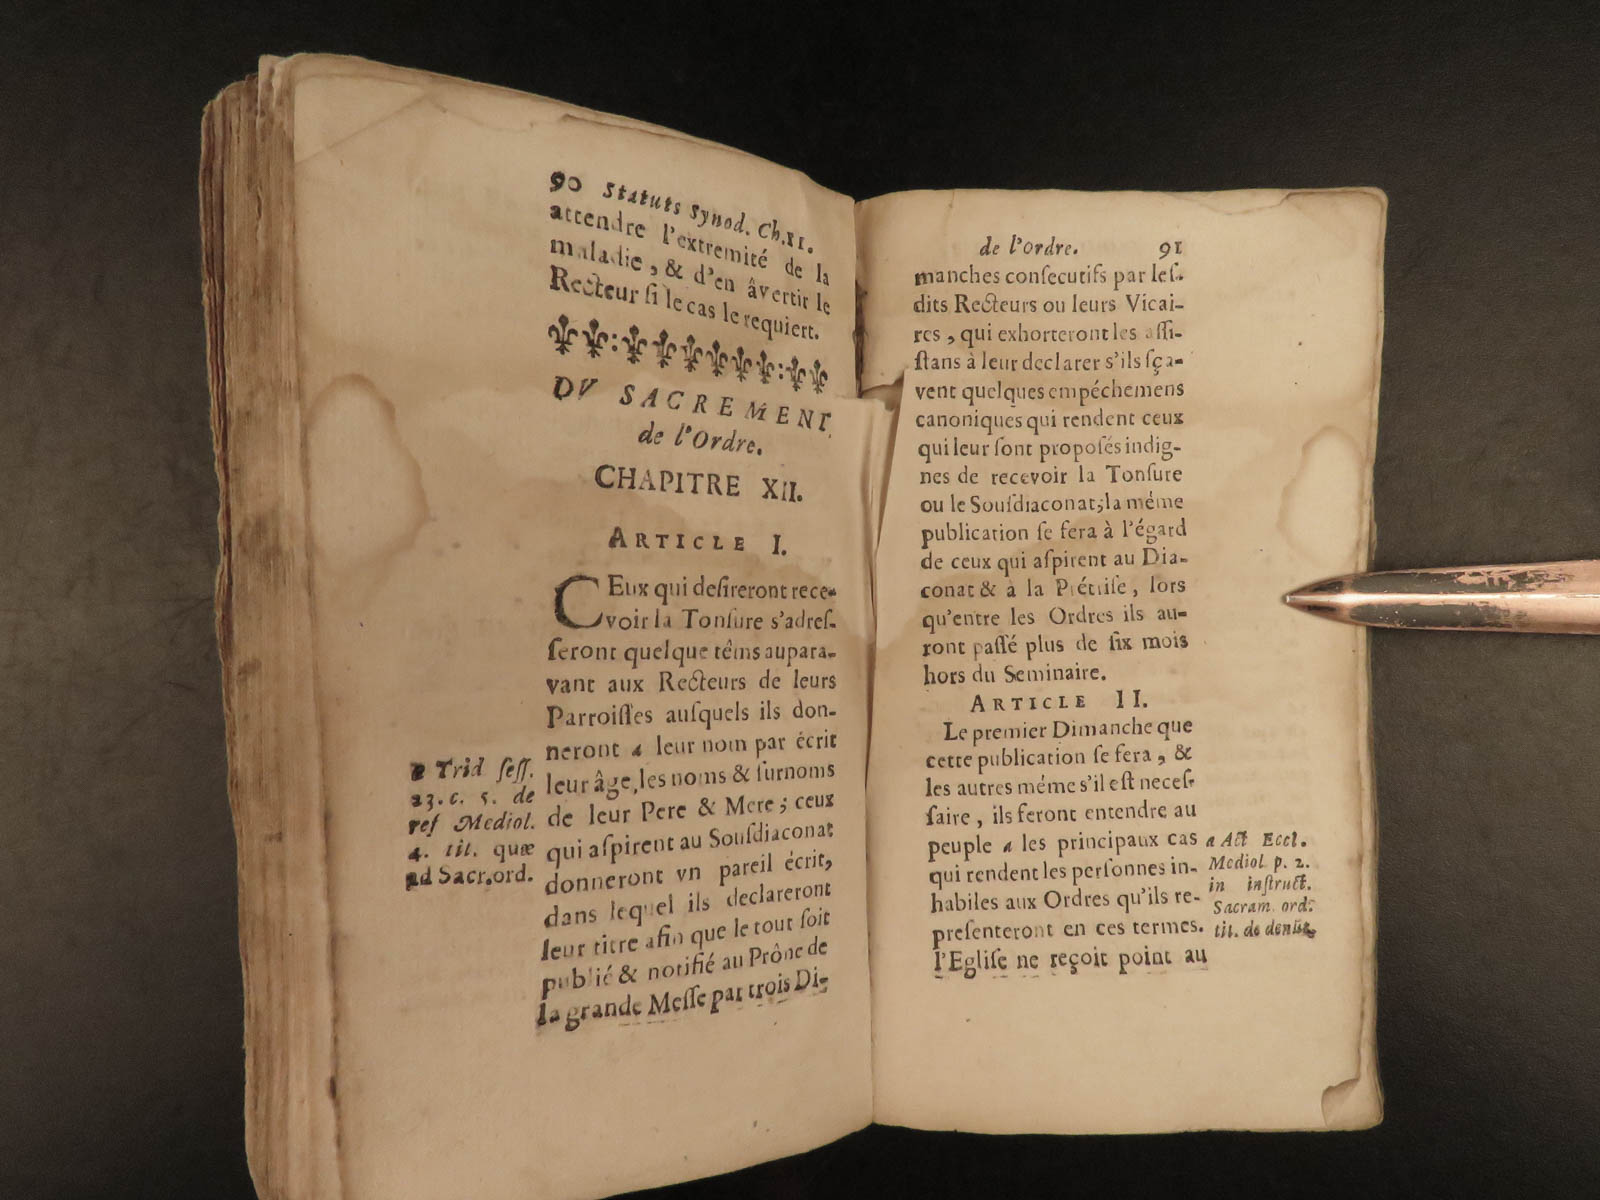 90 Statuts Synod. Ch. XI.
attendre l'extremité de la
maladie, & d'en âvertir le
Recteur si le cas le requiert.
DV SACREMENT
de l'Ordre.
CHAPITRE XII.
ARTICLE I.
CEux qui desireront rece-
voir la Tonsure s'adres-
seront quelque têms aupara-
vant aux Recteurs de leurs
Parroisses ausquels ils don-
neront a leur nom par écrit
leur âge, les noms & surnoms
de leur Pere & Mere; ceux
qui aspirent au Sousdiaconat
donneront vn pareil écrit,
dans lequel ils declareront
leur titre afin que le tout soit
publié & notifié au Prône de
la grande Messe par trois Di-
a Trid sess.
23. c. 5. de
ref Mediol.
4. tit. quæ
ad Sacr. ord.
de l'Ordre. 91
manches consecutifs par les-
dits Recteurs ou leurs Vicai-
res, qui exhorteront les assi-
stans à leur declarer s'ils sça-
vent quelques empéchemens
canoniques qui rendent ceux
qui leur sont proposés indig-
nes de recevoir la Tonsure
ou le Sousdiaconat; la méme
publication se fera à l'égard
de ceux qui aspirent au Dia-
conat & à la Prétrise, lors
qu'entre les Ordres ils au-
ront passé plus de six mois
hors du Seminaire.
ARTICLE II.
Le premier Dimanche que
cette publication se fera, &
les autres méme s'il est neces-
saire, ils feront entendre au
peuple a les principaux cas
qui rendent les personnes in-
habiles aux Ordres qu'ils re-
presenteront en ces termes.
l'Eglise ne reçoit point au
a Act Eccl.
Mediol p. 2.
in instruct.
Sacram. ord.
tit. de